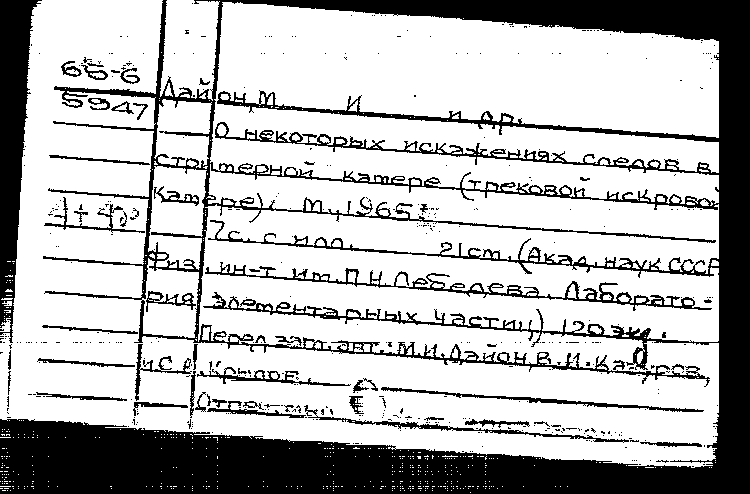 65-6
5947
Дайон, М. И и др.
О некоторых искажениях следов в
стримерной камере (трековой искровой
камере). М., 1965
7с. с илл. 21см. (Акад. наук СССР
Физ. ин-т им. П.Н. Лебедева. Лаборато-
рия элементарных частиц) 120 экз.
Перед загл. авт.: М.И. Дайон, В.И.
и С. Крылов.